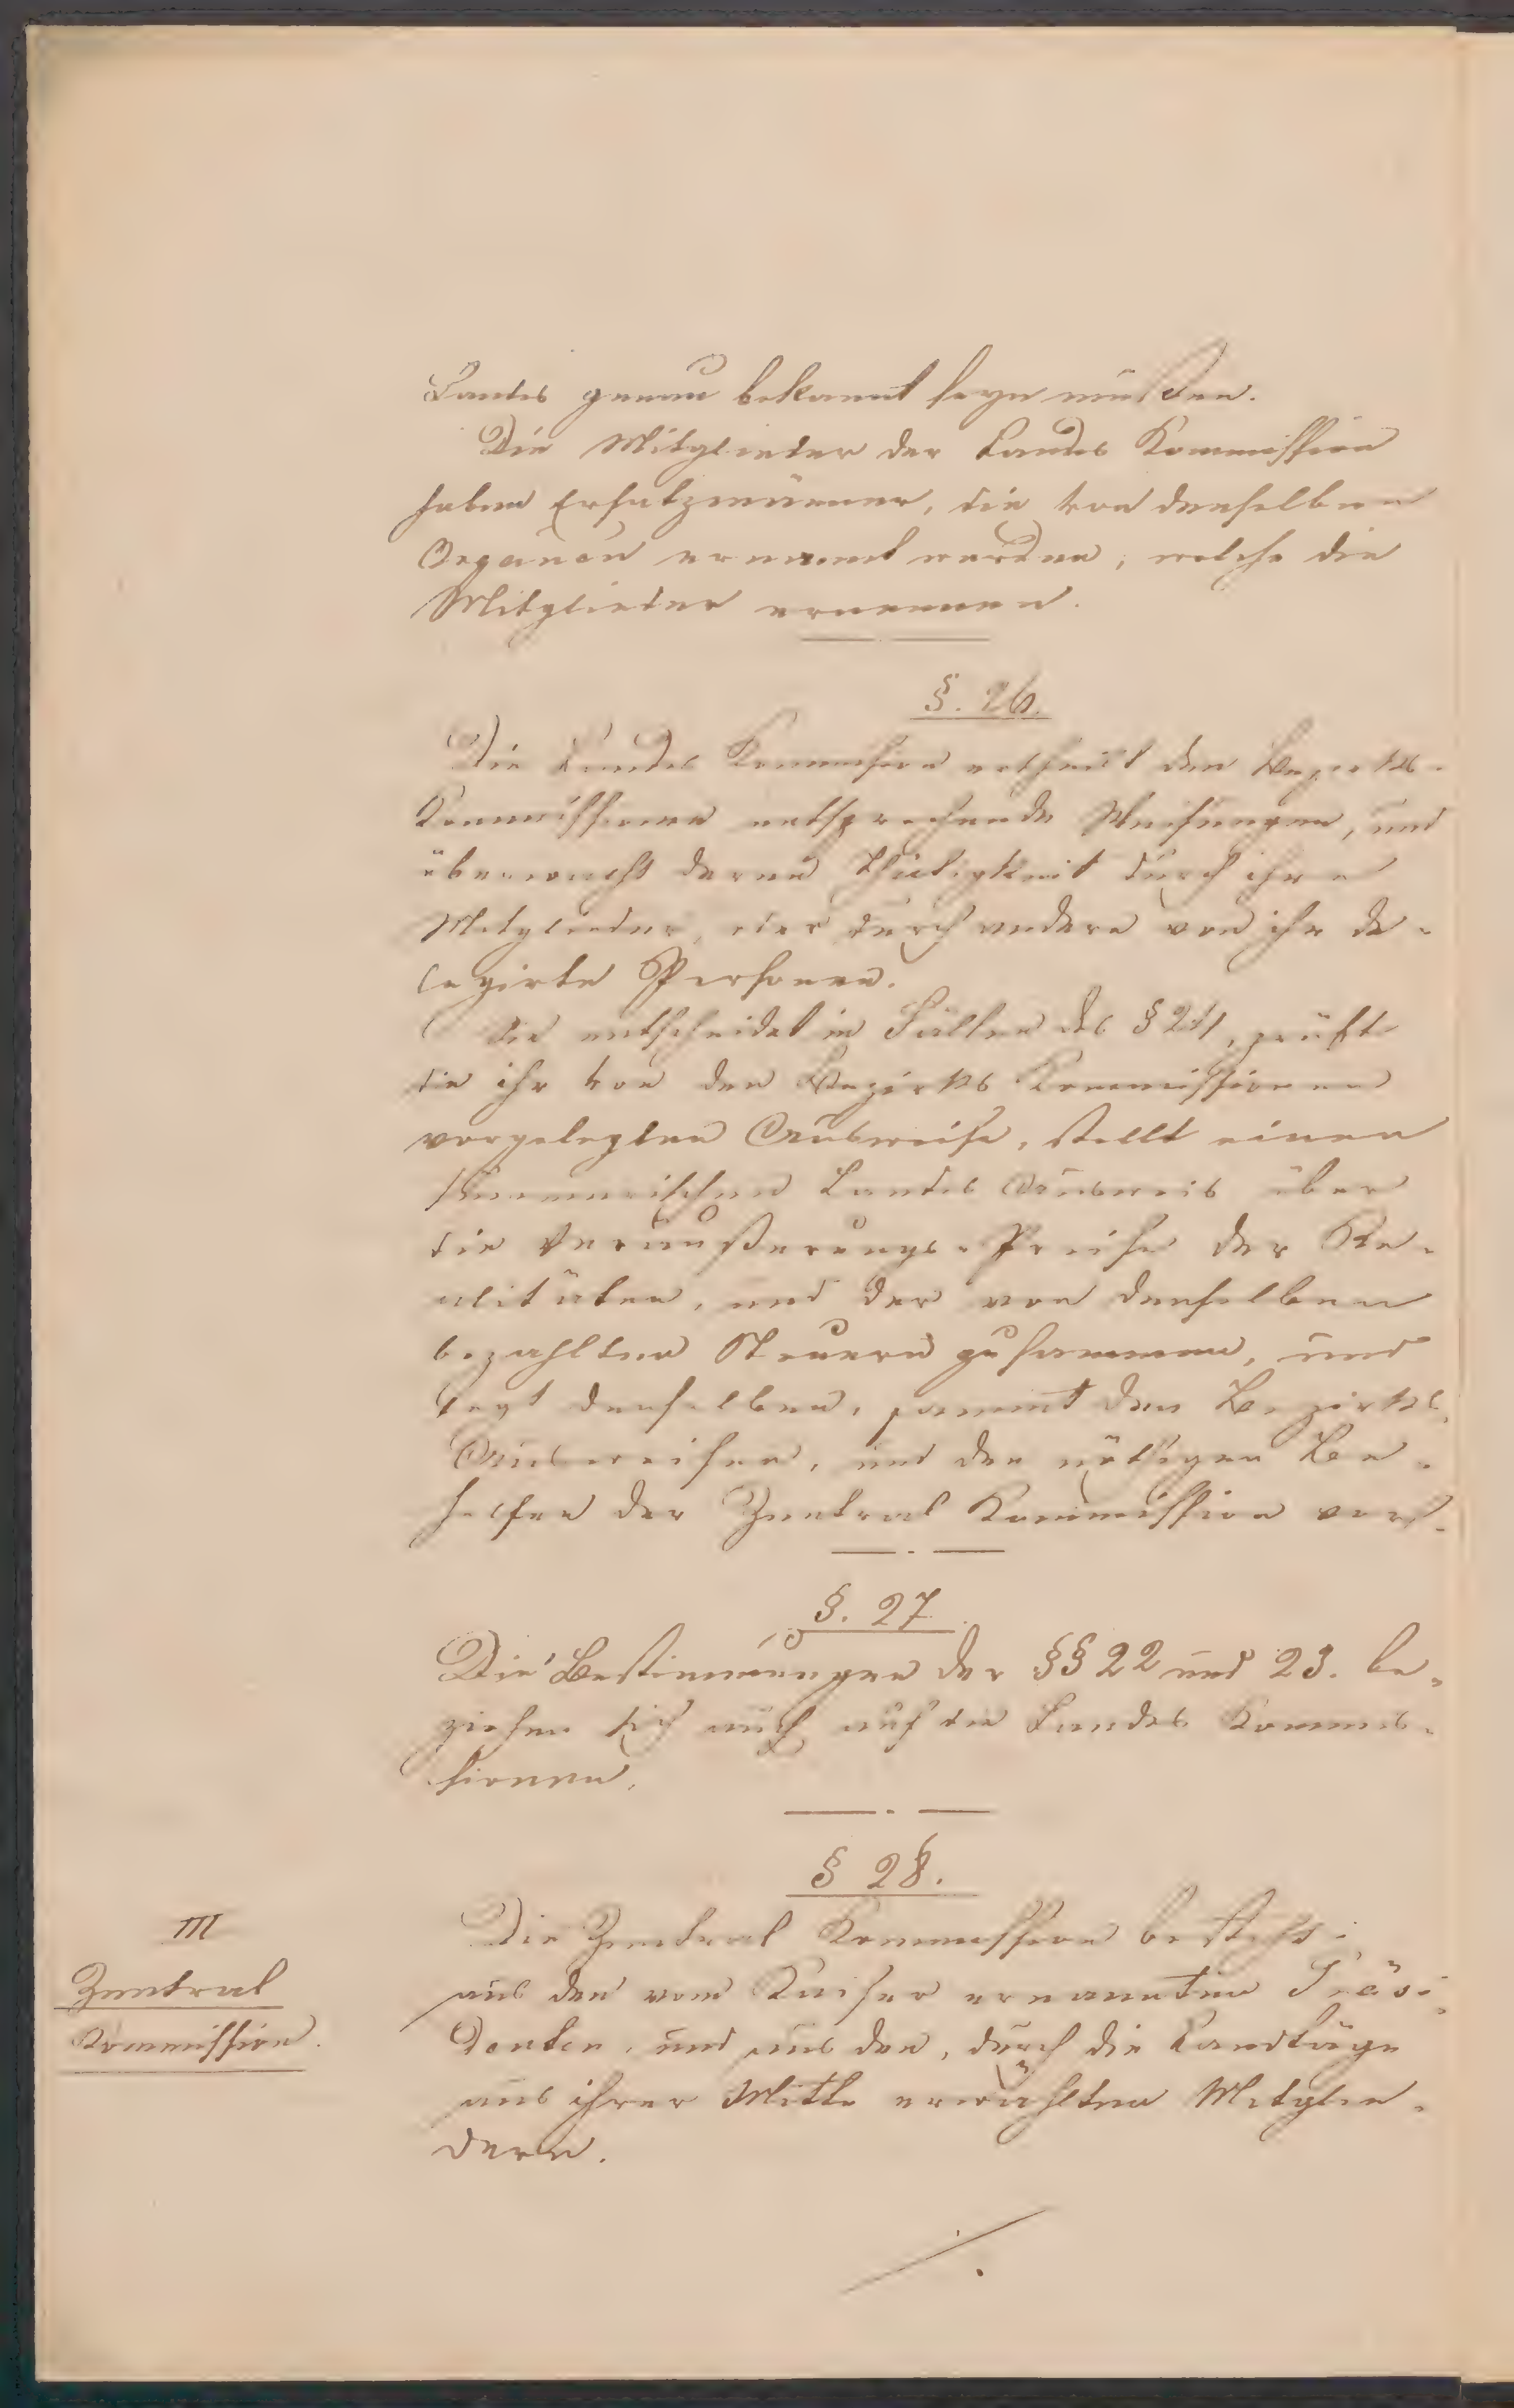 Landes genau bekannt seyn müssen.
Die Mitglieder der Landes Kommission
haben Ersatzmänner, die von denselben
Organen ernannt werden, welche die
Mitglieder ernennen.
§. 26.
Die Landes Kommission ertheilt den Bezirks-
Kommissionen entsprechende Weisungen, und
überwacht deren Thätigkeit durch ihre
Mitglieder, oder durch andere von ihr de-
legirte Personen.
Sie entscheidet in Fällen des § 21, prüft
die ihr von den Bezirks Kommissionen
vorgelegten Ausweise, stellt einen
summarischen Landes Ausweis über
die Veräußerungs-Preise der Re-
alitäten, und der von denselben
bezahlten Steuern zusammen, und
legt denselben, sammt den Bezirks-
Ausweisen, und den nöthigen Be-
helfen der Zentral Kommission vor.
§. 27.
Die Bestimmungen der §§ 22 und 23. be-
ziehen sich auch auf die Landes Kommis-
sionen.
§ 28.
III
Zentral
Kommission.
Die Zentral Kommission besteht:
aus den vom Kaiser ernannten Präsi-
denten, und aus den, durch die Landtäge
aus ihrer Mitte erwählten Mitglie-
dern.